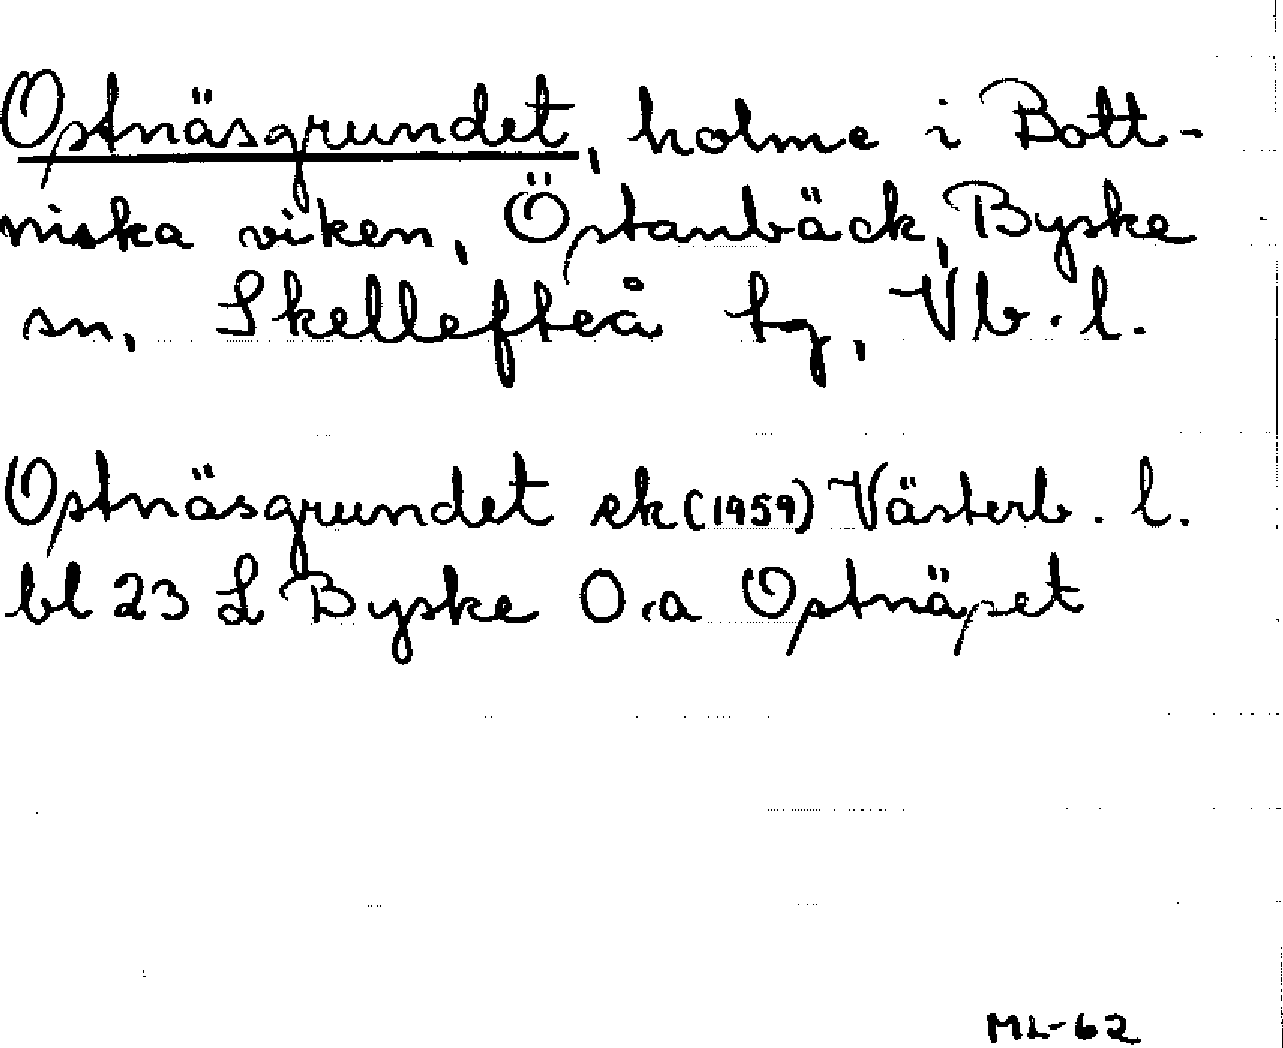 Optnäsgrundet, holme i Bott-
niska viken, Östanbäck, Byske
sn, Skellefteå tg, Vb. l.
Optnäsgrundet ek (1959) Västerb. l.
bl 23 L Byske O.a Optnäset
ML-62